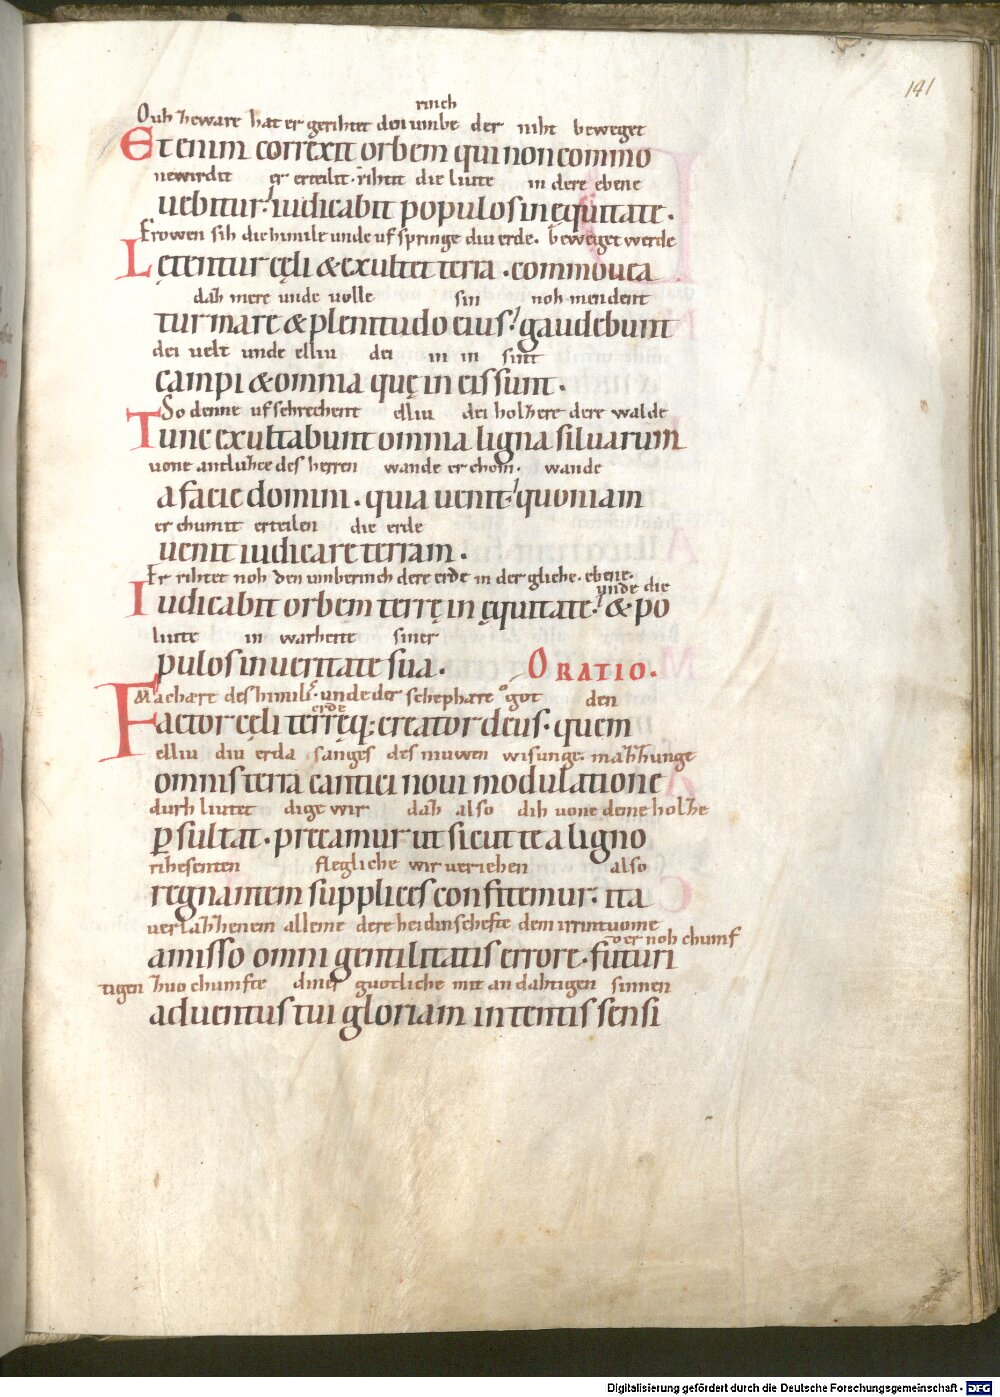 141
rinch
Ouh zeware hat er gerihtet den umbe der niht beweget
Etenim correxit orbem qui non commo
newirdit er erteilit. rihtit die liute in dere ebene
uebitur: iudicabit populos in ęquitate.
Frowen sih die himile unde uf springe diu erde. beweget werde
Lętentur cęli & exultet terra. commouea
daz mere unde volle sin noh mendent
tur mare & plenitudo eius: gaudebunt
dei velt unde elliu dei in in sint
campi & omnia quę in eis sunt.
So denne ufschrechent elliu dei holzere dere walde
Tunc exultabunt omnia ligna siluarum
vone antluzce des herren wande er chom. wande
a facie domini. quia uenit: quoniam
er chumit erteilen die erde
uenit iudicare terram.
Er rihtet noh den umberinch dere erde in der gliche. ebene.
unde die
Iudicabit orbem terrę in ęquitate: & po
liute in warheite siner
pulos in ueritate sua. ORATIO.
Machare des himils. unde der schephare got den
erde
Factor cęli terręq; creator deus. quem
elliu diu erda sanges des niuwen wisunge. mazzunge
omnis terra cantici noui modulatione
durh liutet dige wir daz also dih vone deme holze
psultat. precamur ut sicut te a ligno
rihesenten flegliche wir veriehen also
regnantem supplices confitemur: ita
verlazzenem alleme dere heidinschefte dem irrintuome
amisso omni gentilitatis errore. futuri
der noh chumf
tigen zuo chumfte diner guotliche mit andahtigen sinnen
aduentus tui gloriam intentis sensi
Digitalisierung gefördert durch die Deutsche Forschungsgemeinschaft - DFG